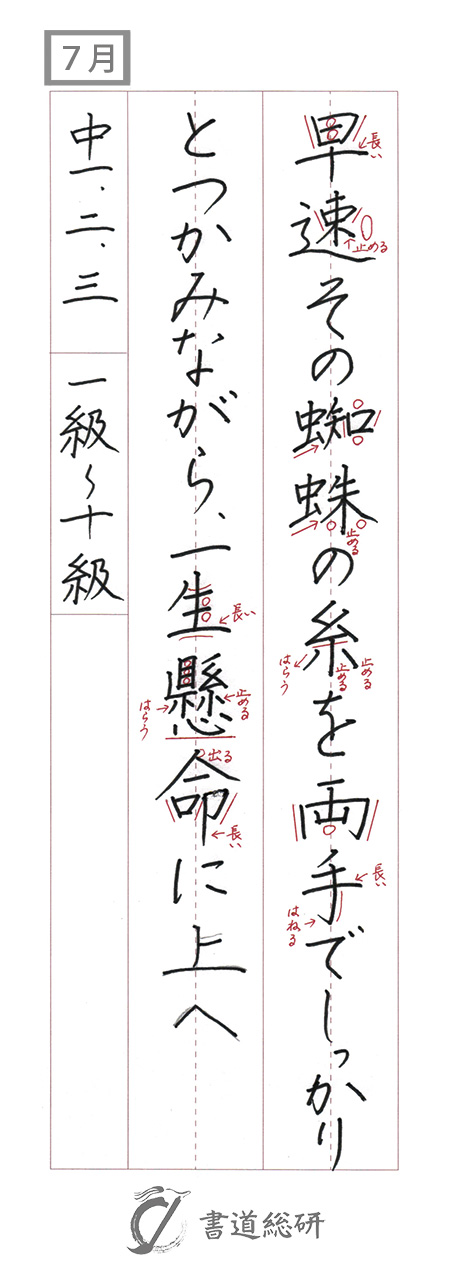 7月
早速その蜘蛛の糸を両手でしっかり
とつかみながら、一生懸命に上へ
中一、二、三 一級〜十級
長い
止める
止める
はらう
止める
止める
長い
はねる
長い
はらう
止める
出る
長い
書道総研